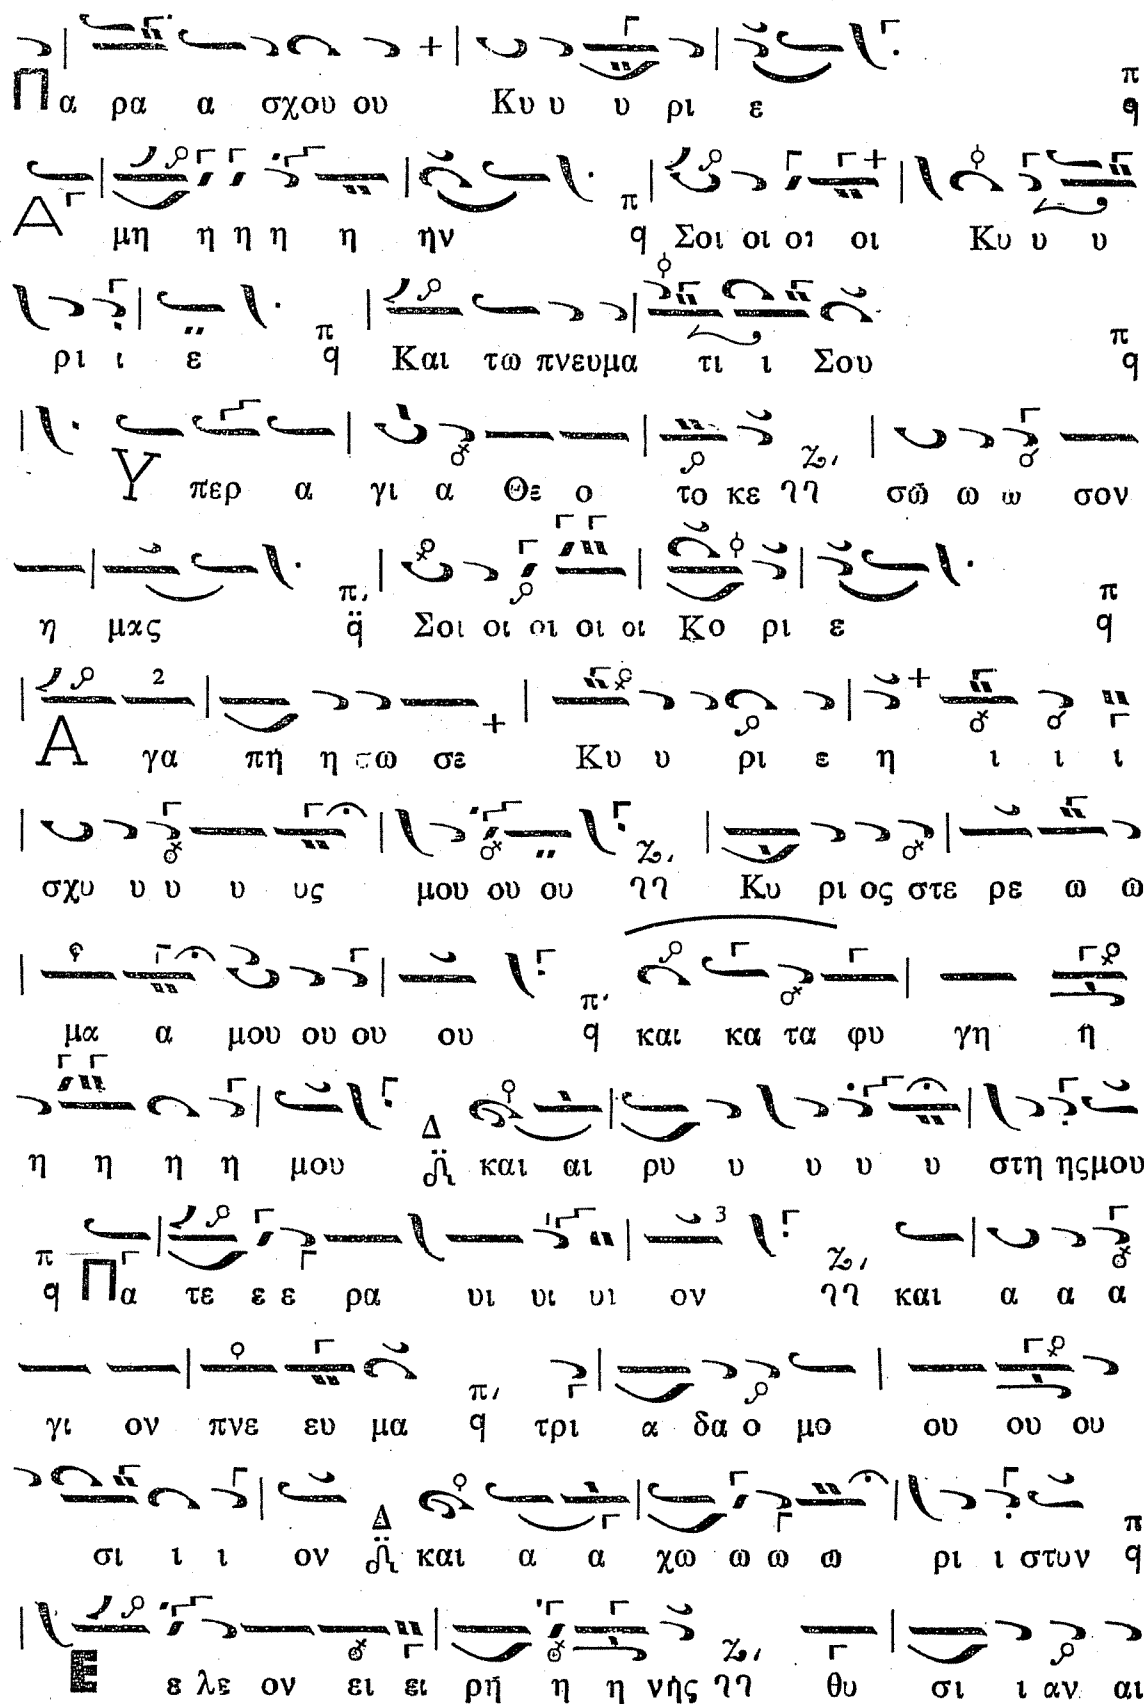 Πα ρα α σχου ου Κυ υ υ ρι ε π q
Α μη η η η η ην π q Σοι οι οι οι Κυ υ υ
ρι ι ε π q Και τω πνευμα τι ι Σου π q
Υ περ α γι α Θε ο το κε Ζ, ๅๅ σω ω ω σον
η μας π, q Σοι οι οι οι οι Κο ρι ε π q
Α γα πη η σω σε Κυ υ ρι ε η ι ι ι
σχυ υ υ υ υς μου ου ου Ζ, ๅๅ Κυ ρι ος στε ρε ω ω
μα α μου ου ου ου π, q και κα τα φυ γη η
η η η η μου Δ και αι ρυ υ υ υ υ στη ης μου
π q Πα τε ε ε ρα υι υι υι ον Ζ, ๅๅ και α α α
γι ον πνε ευ μα π, q τρι α δα ο μο ου ου ου
σι ι ι ον Δ και α α χω ω ω ω ρι ι στυν π q
Ε ε λε ον ει ει ρη η η νης Ζ, ๅๅ θυ σι ι αν αι